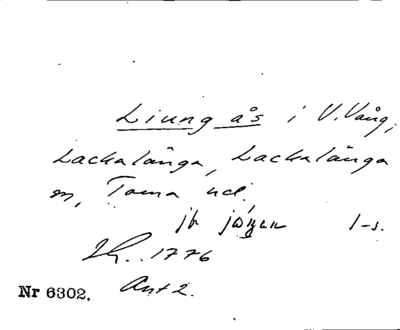 Liung ås i V. Vång,
Lackalänga, Lackalänga
sn, Torna hd.
jb jorden 1-s.
Lh. 1776
Akt 2.
Nr 6302.